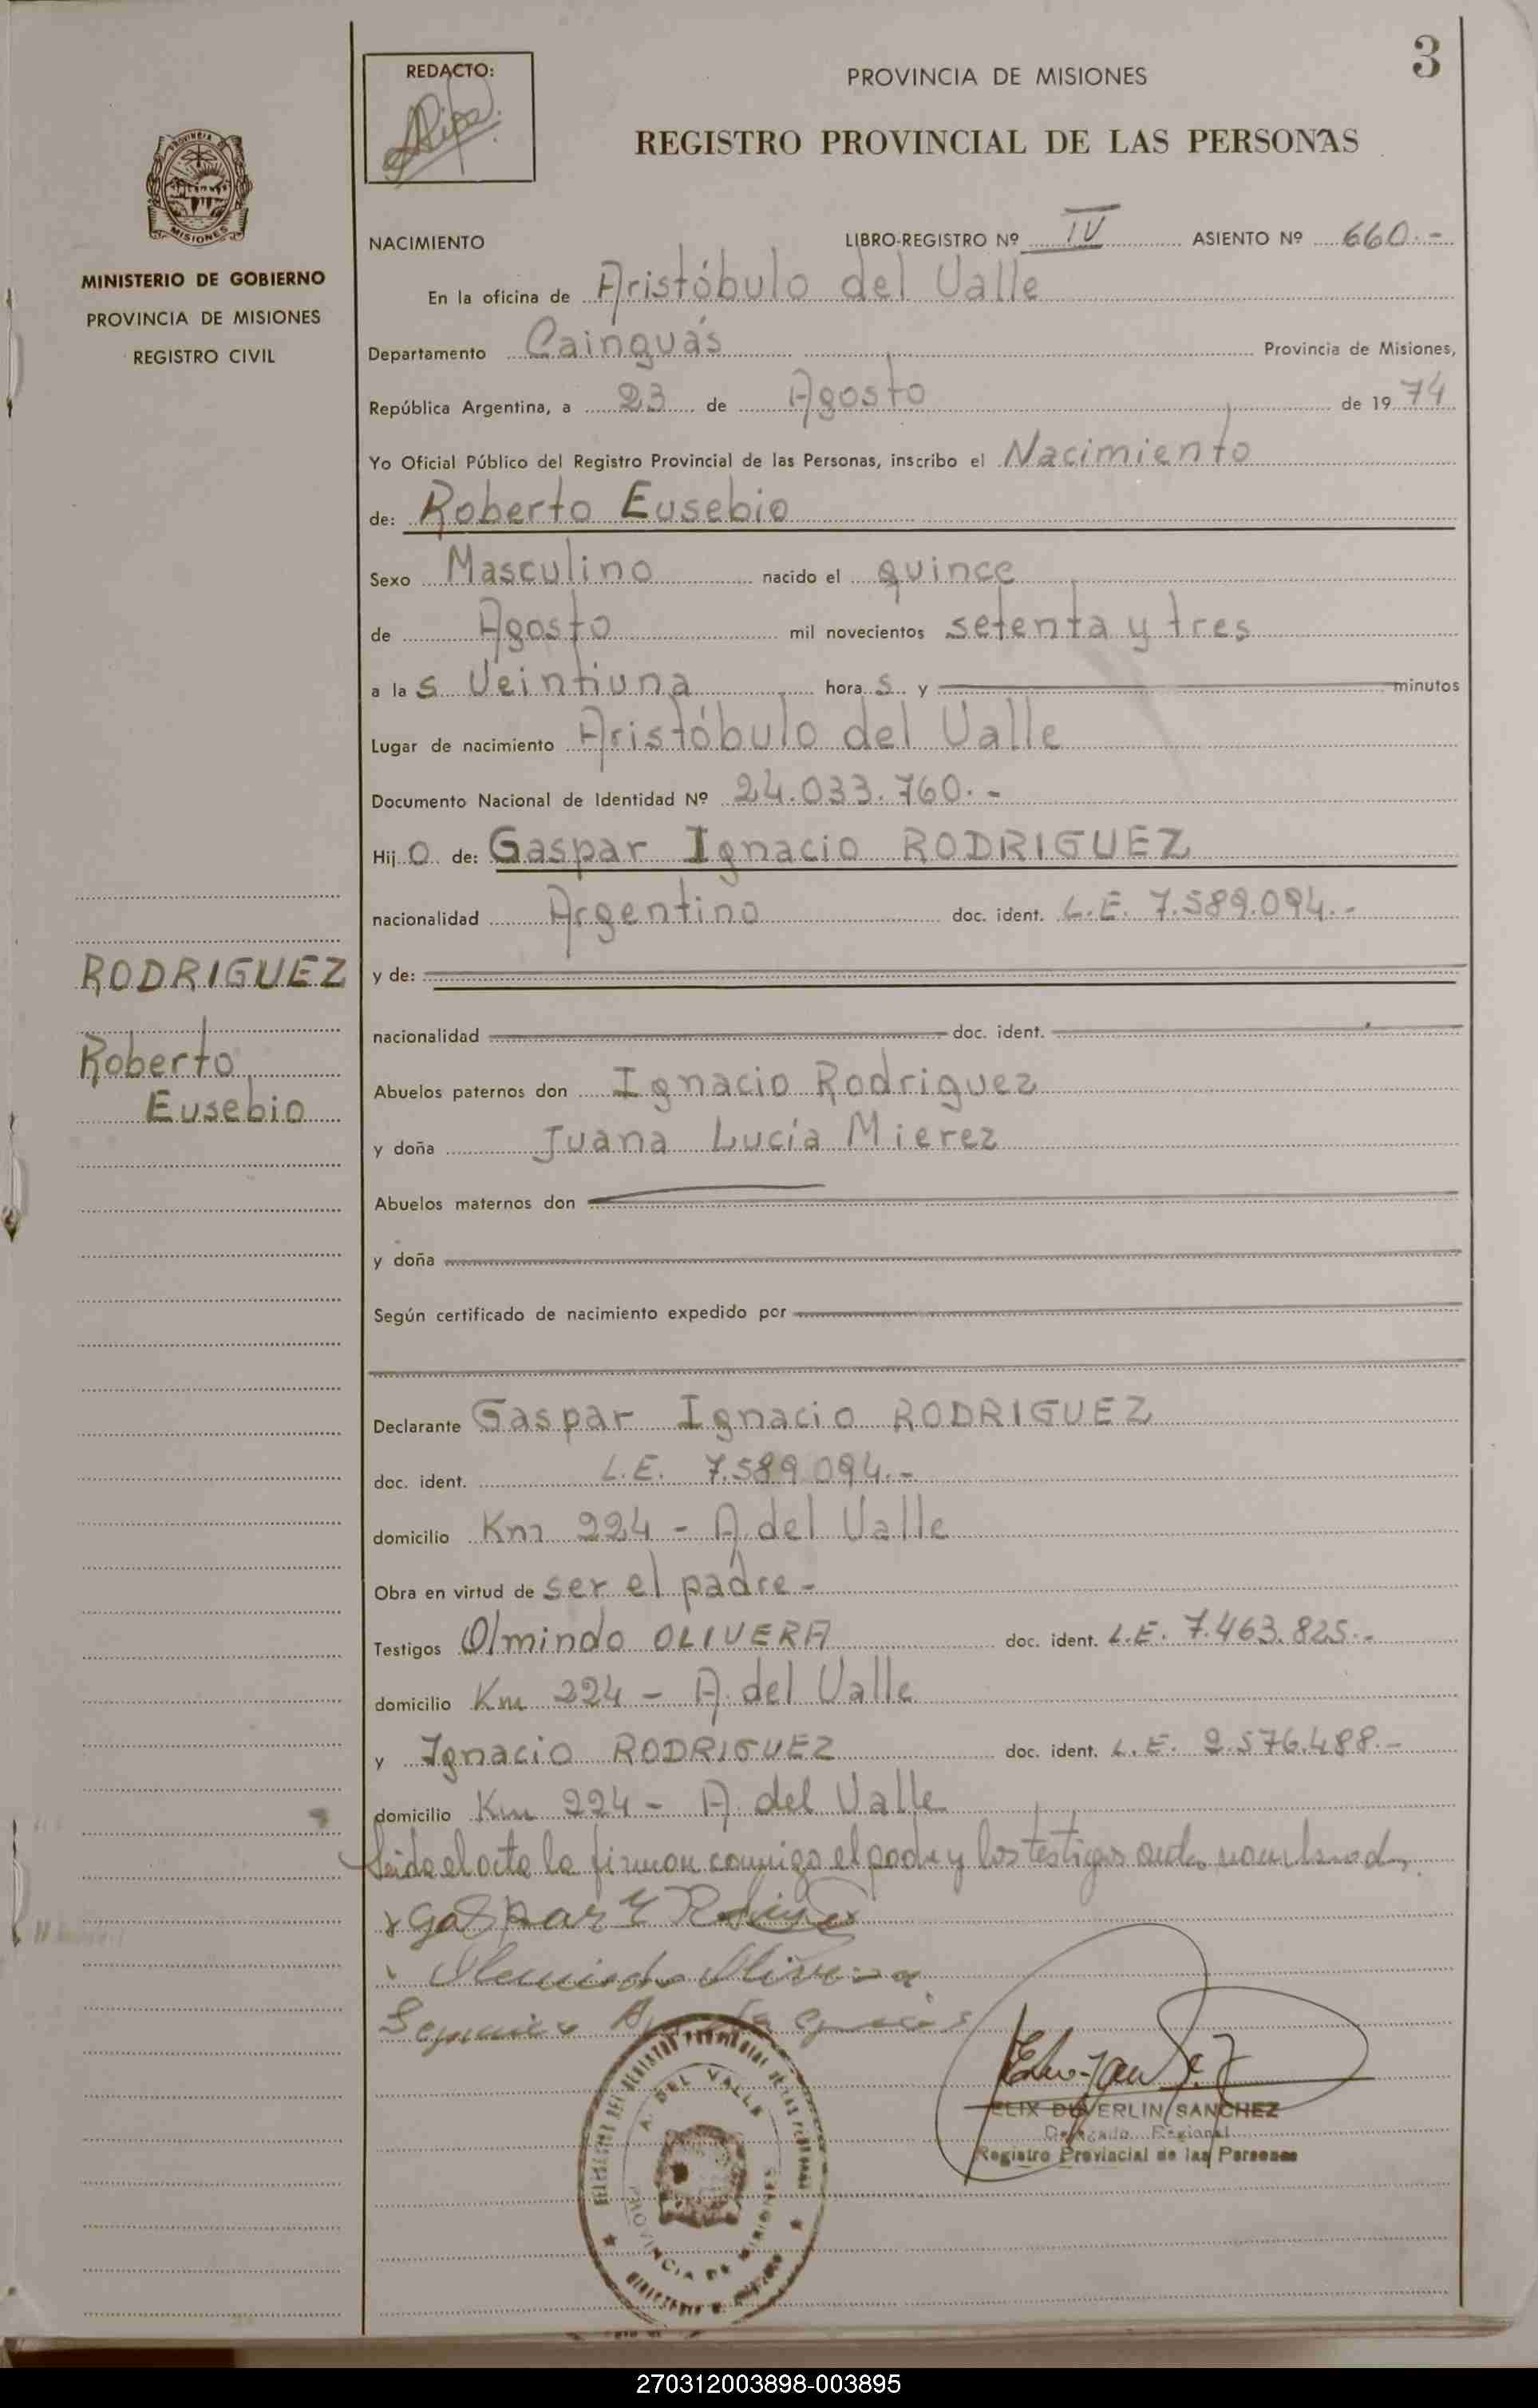 3
REDACTO:
PROVINCIA DE MISIONES
REGISTRO PROVINCIAL DE LAS PERSONAS
MISIONES
MINISTERIO DE GOBIERNO
PROVINCIA DE MISIONES
REGISTRO CIVIL
NACIMIENTO LIBRO-REGISTRO Nº IV ASIENTO Nº 660.-
En la oficina de Aristóbulo del Valle
Departamento Cainguás Provincia de Misiones,
República Argentina, a 23 de Agosto de 1974
Yo Oficial Público del Registro Provincial de las Personas, inscribo el Nacimiento
de: Roberto Eusebio
Sexo Masculino nacido el quince
de Agosto mil novecientos setenta y tres
a las Veintiuna horas y minutos
Lugar de nacimiento Aristóbulo del Valle
Documento Nacional de Identidad Nº 24.033.760.-
Hijo de: Gaspar Ignacio RODRIGUEZ
nacionalidad Argentino doc. ident. L.E. 7.589.094.-
RODRIGUEZ
Roberto
Eusebio
y de:
nacionalidad doc. ident.
Abuelos paternos don Ignacio Rodriguez
y doña Juana Lucía Mierez
Abuelos maternos don
y doña
Según certificado de nacimiento expedido por
Declarante Gaspar Ignacio RODRIGUEZ
doc. ident. L.E. 7.589.094.-
domicilio Km 224 - A. del Valle
Obra en virtud de ser el padre-
Testigos Olmindo OLIVERA doc. ident. L.E. 7.463.825.-
domicilio Km 224 - A. del Valle
y Ignacio RODRIGUEZ doc. ident. L.E. 2.576.488.-
domicilio Km 224 - A. del Valle
Leida el acta la firman conmigo el padre y los testigos antes nombrados.
Gaspar I
Olivera
ELIX DUVERLIN SANCHEZ
Delegado Regional
Registro Provincial de las Personas
A. DEL VALLE
PROVINCIA DE MISIONES
270312003898-003895